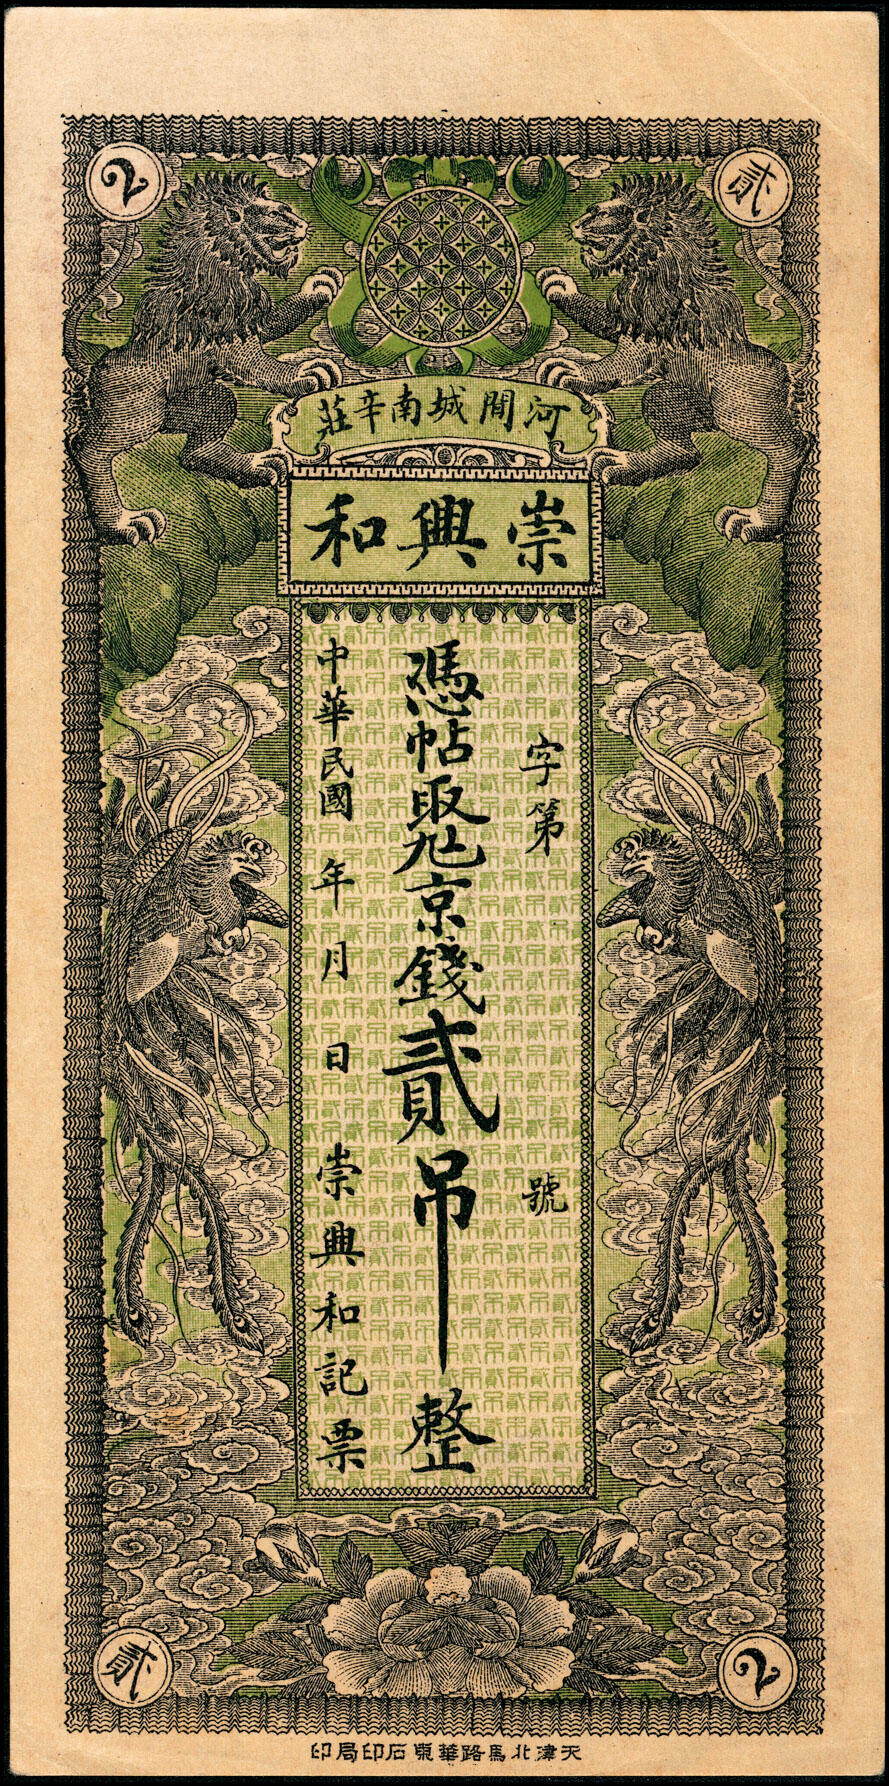 2
貳
河間城南辛莊
崇興和
字第 號
憑帖取九京錢貳吊整
中華民國 年 月 日 崇興和記票
貳
2
天津北馬路華東石印局印